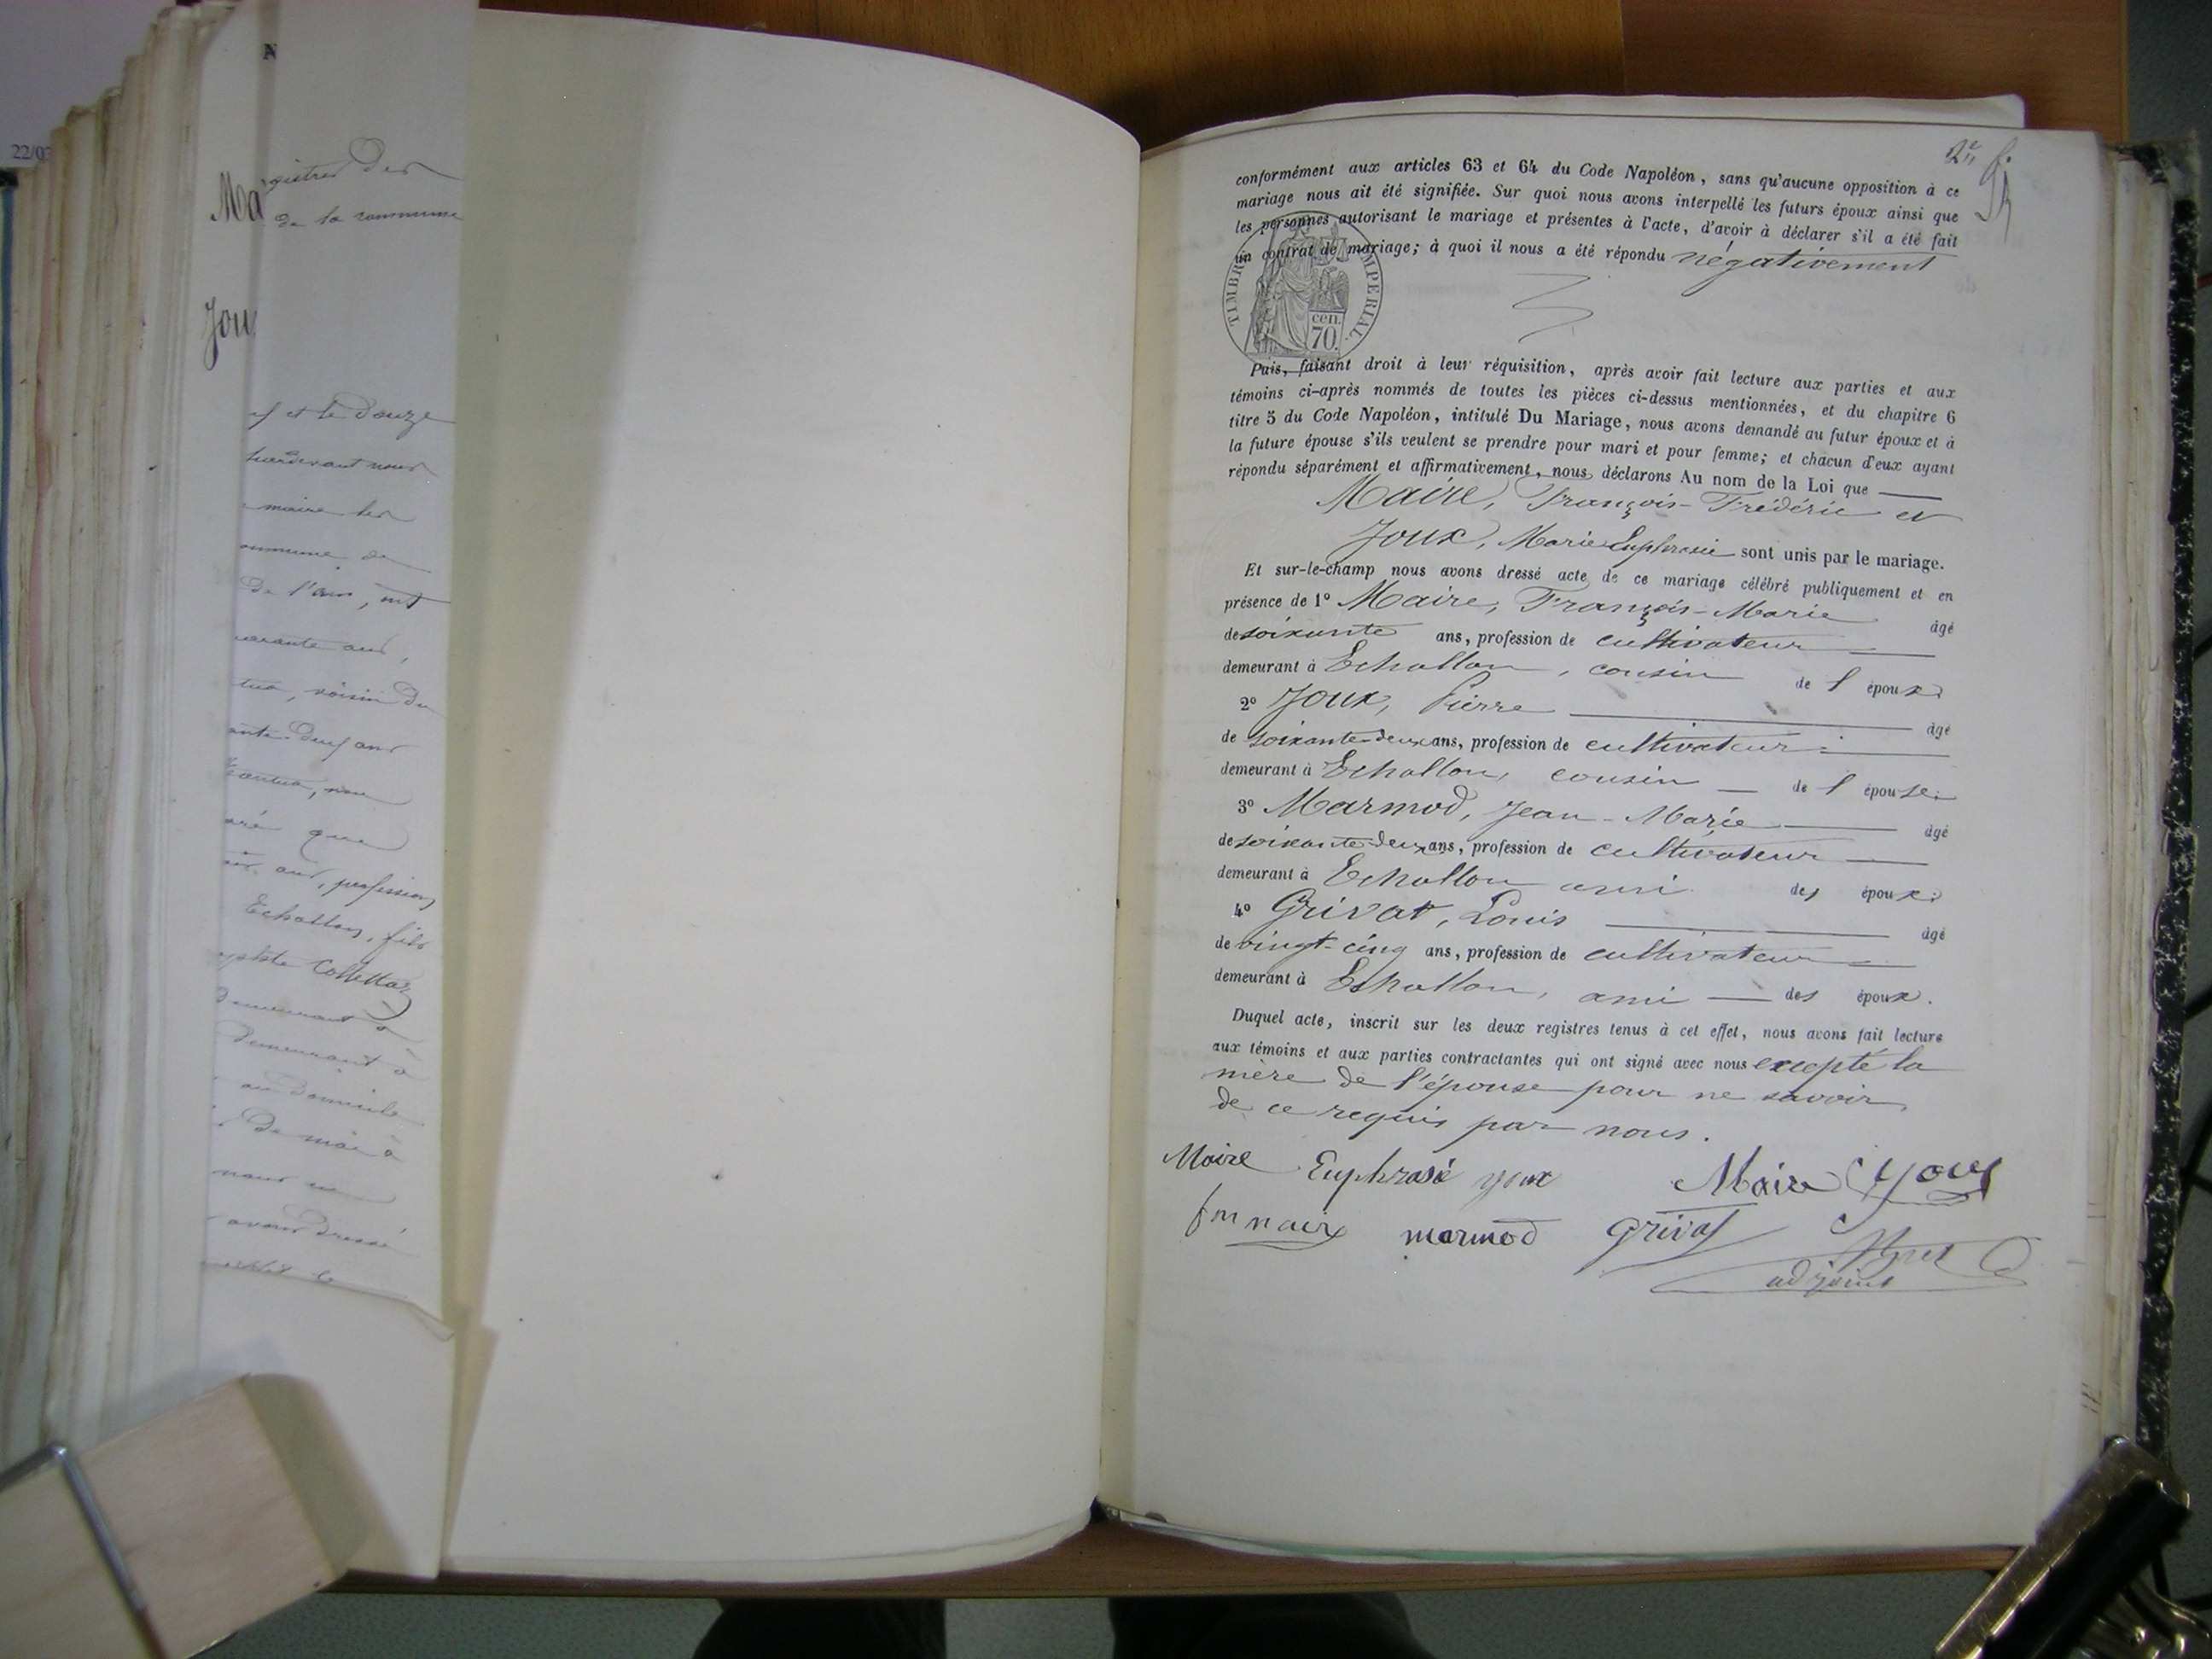 22/03
N
Ma
Jou
de la commune
et le douze
maire
de l'an
voisin du
ans, profession
Echallon, fils
demeurant à
demeurant à
au domicile
avons dressé
2e
conformément aux articles 63 et 64 du Code Napoléon, sans qu'aucune opposition à ce
mariage nous ait été signifiée. Sur quoi nous avons interpellé les futurs époux ainsi que
les personnes autorisant le mariage et présentes à l'acte, d'avoir à déclarer s'il a été fait
un contrat de mariage; à quoi il nous a été répondu négativement
TIMBRE IMPERIAL
cen.
70.
Puis, faisant droit à leur réquisition, après avoir fait lecture aux parties et aux
témoins ci-après nommés de toutes les pièces ci-dessus mentionnées, et du chapitre 6
titre 5 du Code Napoléon, intitulé Du Mariage, nous avons demandé au futur époux et à
la future épouse s'ils veulent se prendre pour mari et pour femme; et chacun d'eux ayant
répondu séparément et affirmativement, nous déclarons Au nom de la Loi que
Maire, François-Frédéric et
Joux, Marie Euphrasie sont unis par le mariage.
Et sur-le-champ nous avons dressé acte de ce mariage célébré publiquement et en
présence de 1º Maire, François-Marie âgé
de soixante ans, profession de cultivateur
demeurant à Echallon, cousin de l époux.
2º Joux, Pierre âgé
de soixante-deux ans, profession de cultivateur
demeurant à Echallon, cousin de l épouse.
3º Marmod, Jean-Marie âgé
de soixante-deux ans, profession de cultivateur
demeurant à Echallon ami des époux.
4º Grivat, Louis âgé
de vingt-cinq ans, profession de cultivateur
demeurant à Echallon, ami des époux.
Duquel acte, inscrit sur les deux registres tenus à cet effet, nous avons fait lecture
aux témoins et aux parties contractantes qui ont signé avec nous excepté la
mère de l'épouse pour ne savoir,
de ce requis par nous.
Maire Euphrasie joux Maire Joux
marmod Grivat
adjoint